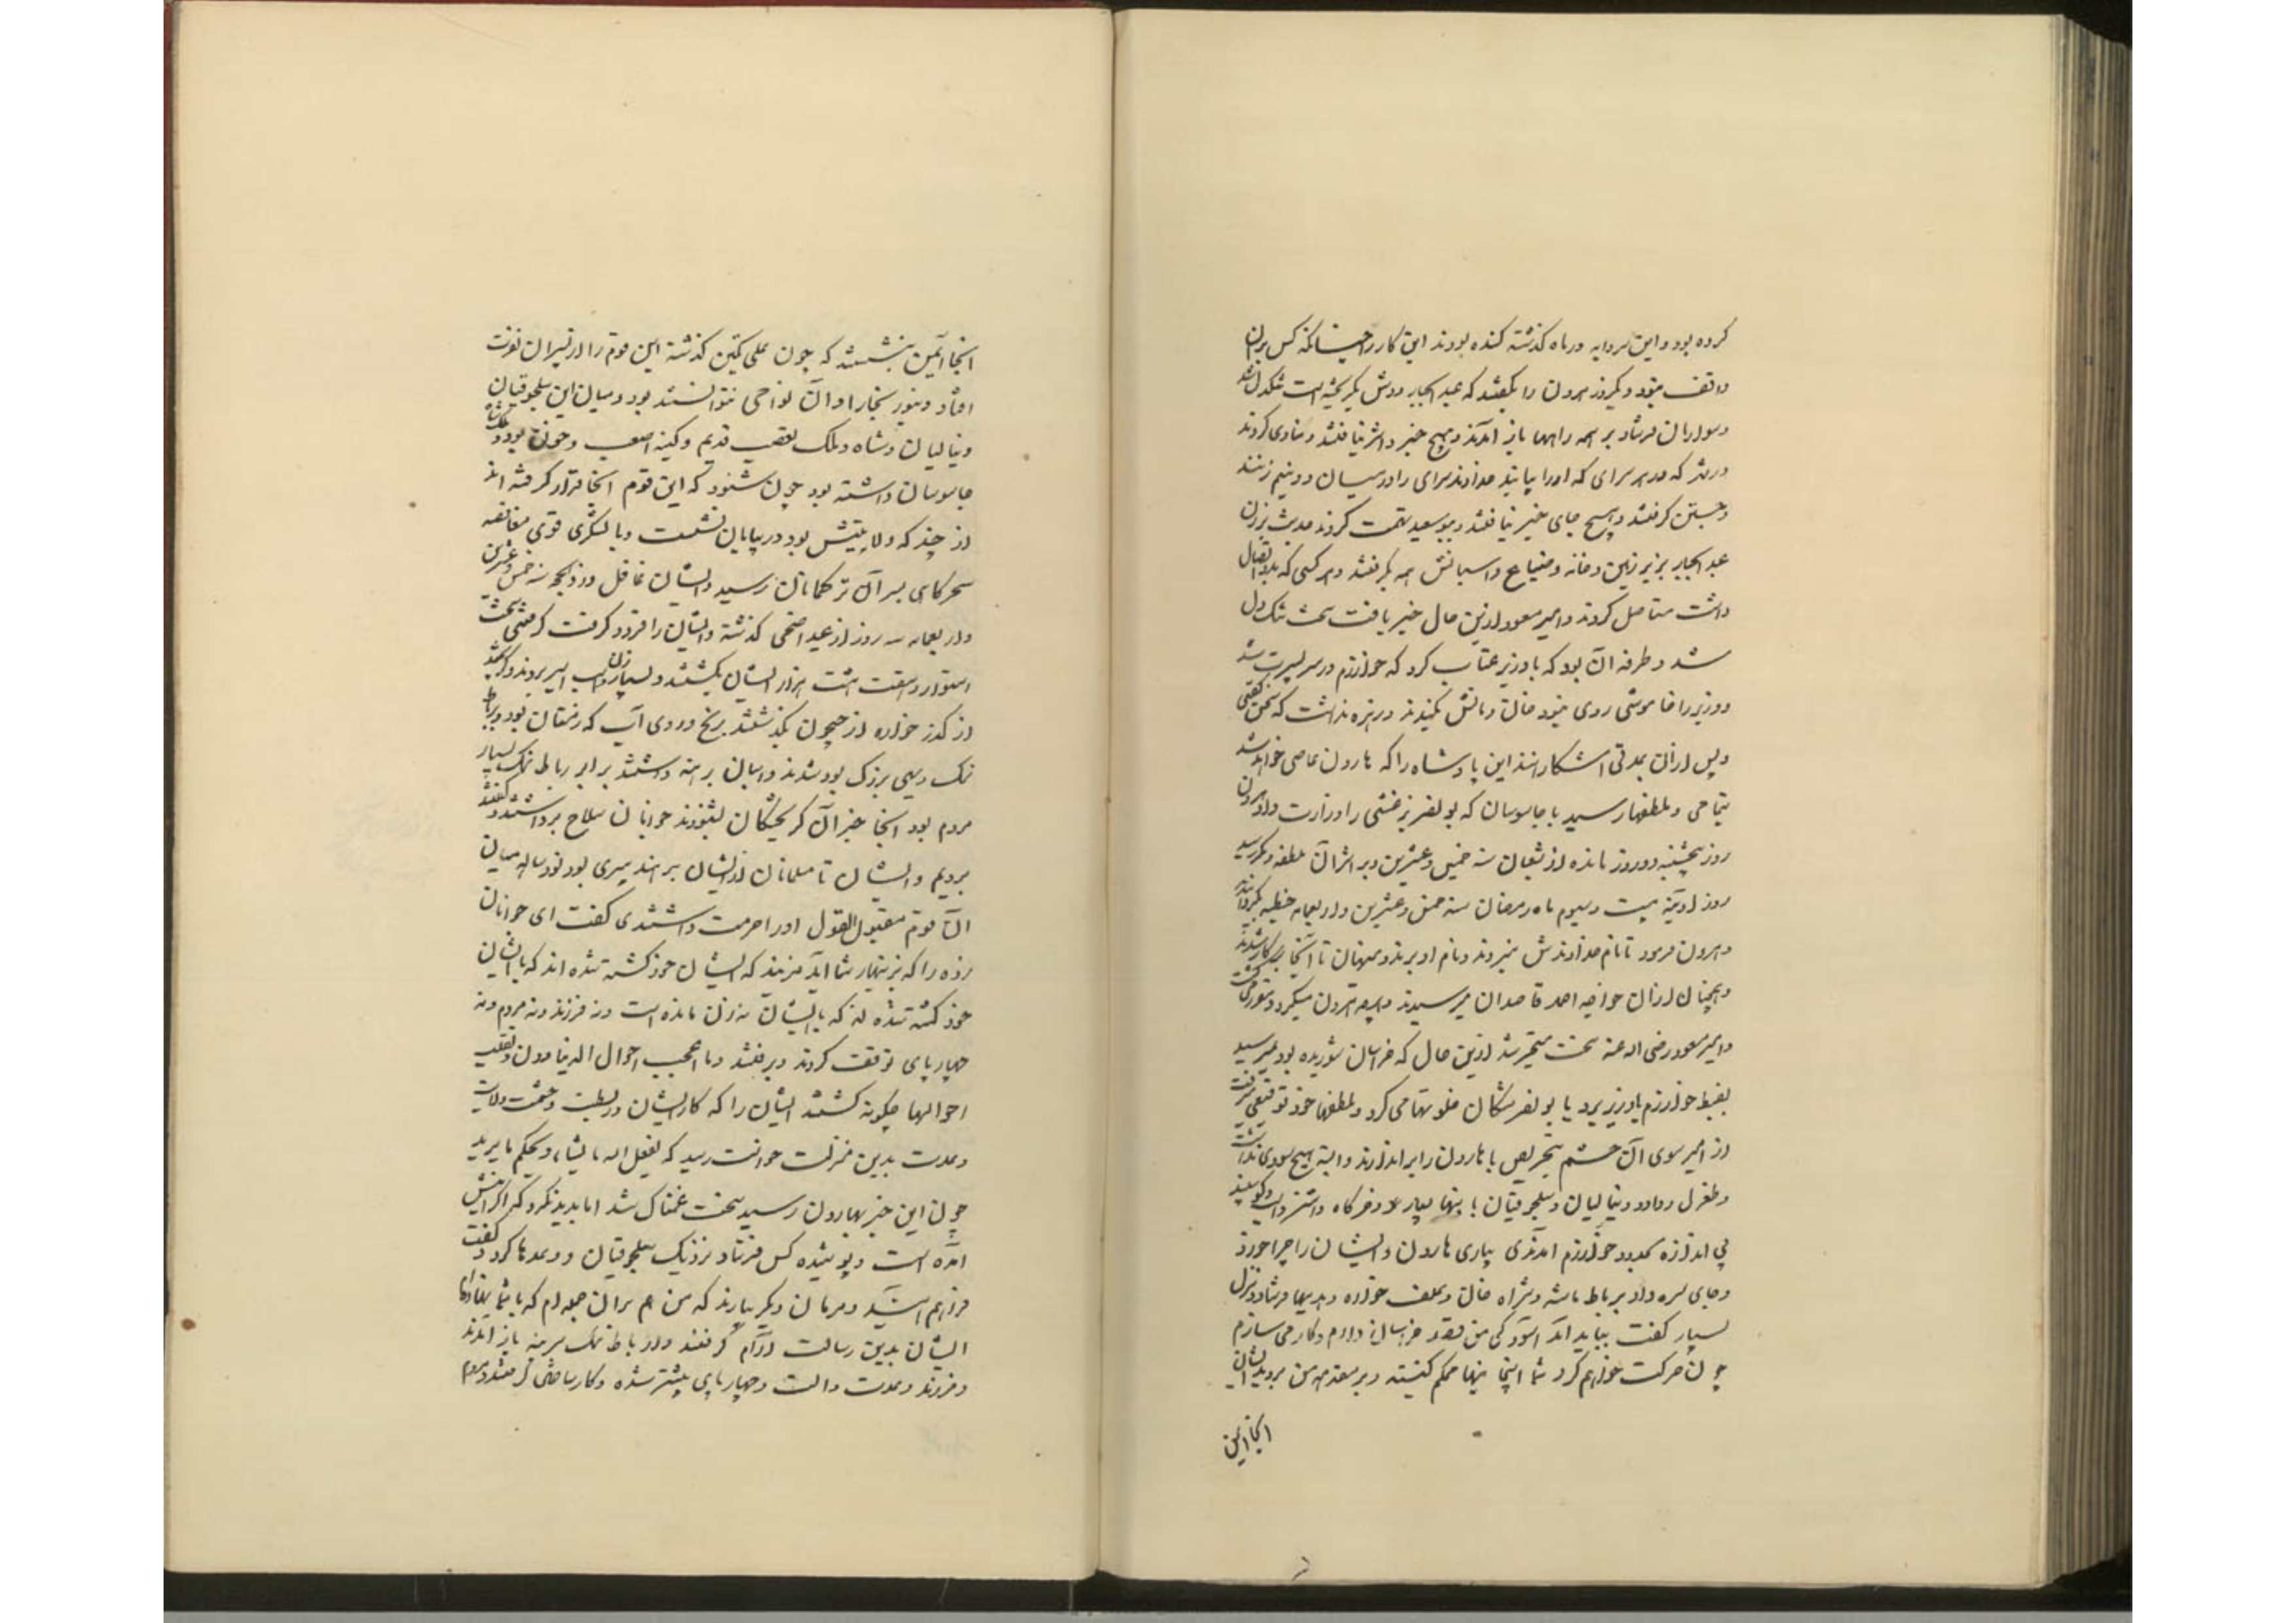 کرده بود و این سردابه در ماه گذشته کنده بودند این کار را چنانکه کس بر آن
واقف نبود و یکروز هرون را بگفتند که عبدالجبار دوش بگریخته است تنگدل شد
و سواران فرستاد بر همه راهها باز آمدند و هیچ خبر و اثر نیافتند و منادی کردند
در شهر که در هر سرای که او را بیابند خداوند سرای را در میان دو نیم زنند
و جستن گرفتند و هیچ جای خبر نیافتند و ببوسعید تهمت کردند حدیث بردن
عبدالجبار بزیر زمین و خانه و ضیاع و اسبابش همه بگرفتند و هر کسی که بدو اتصال
داشت مستاصل کردند و امیر مسعود ازین حال خبر یافت سخت تنگ دل
شد و طرفه آن بود که با وزیر عتاب کرد که خوارزم در سر پسرت شد
و وزیر را خاموشی روی نبود خان و مانش بکندند و زهره نداشت که سخن گفتی
و پس از آن بمدتی آشکارا شد این پادشاه را که هارون عاصی خواهد شد
بتمامی و ملطفها رسید با جاسوسان که بونصر بزغشی را وزارت داد هرون
روز پنجشنبه دو روز مانده از شعبان سنه خمس و عشرین و بر اثر آن ملطفه دیگر رسید
روز آدینه بیست و سیوم ماه رمضان سنه خمس و عشرین و اربعمایه خطبه بگردانیدند
و هرون فرمود تا نام خداوندش نبردند و نام او بردند و منهیان تا آنجا بر کار شدند
و همچنان از آن خواجه احمد قاصدان میرسیدند و هرچه هرون میکرد
و امیر مسعود رضی الله عنه سخت متحیر شد ازین حال که خراسان شوریده بود نمیرسید
بضبط خوارزم با وزیر و با بونصر مشکان خلوتها می کرد و ملطفها خرد توقیعی میرفت
از امیر سوی آن حشم بتحریض تا هارون را براندازند و البته هیچ سودی نداشت
و طغرل و داود و ینالیان و سلجوقیان با بنها بسیار و خرگاه و اشتر و اسب و گوسفند
بی اندازه بحدود خوارزم آمدندی بیاری هارون و ایشان را چراخورد
و جای سره داد برباط ماشه و شراه خان و علف خواره و هدیها فرستاد و نزل
بسیار گفت بباید آسود که من قصد خراسان دارم و کار می سازم
چون حرکت خواهم کرد شما اینجا بنها محکم کنید و بر مقدمه من بروید ایشان
اینجا ایمن
انجا ایمن بنشستند که چون علی تکین گذشته این قوم را از پسران نفرت
افتاد و بنور بخارا و آن نواحی نتوانستند بود و میان این سلجوقیان
و ینالیان و شاه ملک تعصب قدیم و کینه صعب و خون بود و شاه ملک
جاسوسان داشته بود چون شنود که این قوم آنجا قرار گرفته اند
از جند که ولایتش بود در بیابان نشست و با لشکری قوی مغافصه
سحرگاهی بسر آن ترکمانان رسید و ایشان غافل در ذی الحجه سنه خمس و عشرین
و اربعمایه سه روز از عید اضحی گذشته و ایشان را فرو گرفت گرفتنی سخت
استوار و هفت هشت هزار از ایشان بکشتند و بسیار زن و اسب و اسیر بردند و گریختگان
از گذر خواره از جیحون بگذشتند بر یخ و روی آب که زمستان بود و برباط
نمک دیهی بزرگ بود شدند و اسبان برهنه داشتند برابر رباط نمک بسیار
مردم بود آنجا خبر آن گریختگان بشنودند جوانان سلاح برداشتند و گفتند
برویم و ایشان را تا مسلمانان از ایشان برهند پیری بود نود ساله میان
آن قوم مقبول القول او را حرمت داشتندی گفت ای جوانان
زده را که بزینهار شما آید مزنید که ایشان خود کشته شده اند که با ایشان
خود کشته شده اند که با ایشان نه زن مانده است و نه فرزند و نه مردم و نه
چهارپای توقف کردند و برفتند و ما اعجب احوال الدنیا و تقلب
احوالها چگونه گشتند ایشان را که کار ایشان در بسطت و حشمت و ولایت
و عدت بدین منزلت خواست رسید که یفعل الله ما یشاء و یحکم ما یرید
چون این خبر بهارون رسید سخت غمناک شد اما پدید نکرد که از آتش
آمده است و پوشیده کس فرستاد نزدیک سلجوقیان و وعدها کرد و گفت
فراهم آیید و مردمان دیگر بیارید که من هم بران جمله ام که با شما نهاده ام
ایشان بدین رسالت آرام گرفتند و از رباط نمک سر بنه باز آمدند
و فرزند و عدت و آلت و چهارپای بیشتر شده و کار ساختن گرفتند و مردم